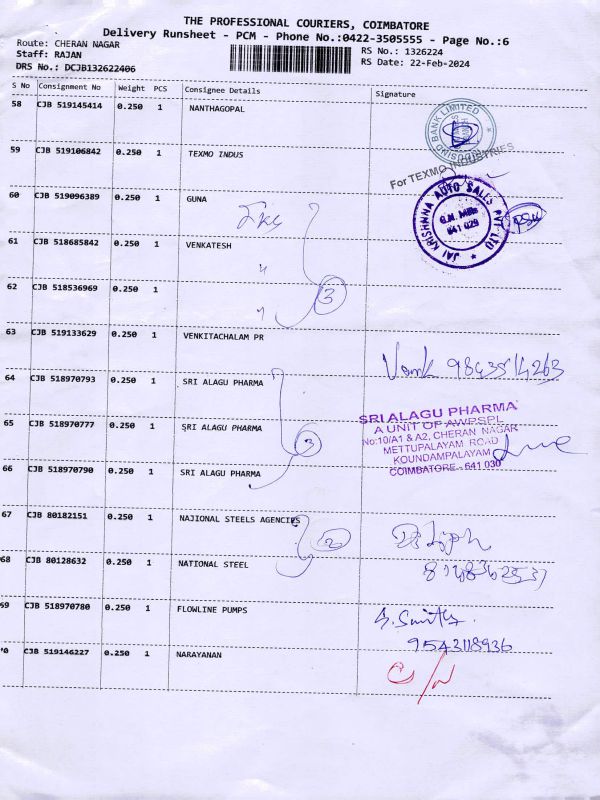 THE PROFESSIONAL COURIERS, COIMBATORE
Delivery Runsheet - PCM - Phone No.:0422-3505555 - Page No.:6
Route: CHERAN NAGAR
Staff: RAJAN
DRS No.: DCJB132622406
RS No.: 1326224
RS Date: 22-Feb-2024
S No Consignment No Weight PCS Consignee Details Signature
58 CJB 519145414 0.250 1 NANTHAGOPAL
BANK LIMITED
59 CJB 519106842 0.250 1 TEXMO INDUS
For TEXMO INDUSTRIES
60 CJB 519096389 0.250 1 GUNA
JAI KRISHNNA AUTO SALES PVT LTD
G.N. Mills
641 029
61 CJB 518685842 0.250 1 VENKATESH
62 CJB 518536969 0.250 1
3
63 CJB 519133629 0.250 1 VENKITACHALAM PR
64 CJB 518970793 0.250 1 SRI ALAGU PHARMA
SRI ALAGU PHARMA
A UNIT OF AWPSPL
No:10/A1 & A2, CHERAN NAGAR
METTUPALAYAM ROAD
KOUNDAMPALAYAM
COIMBATORE - 641 030
65 CJB 518970777 0.250 1 SRI ALAGU PHARMA
3
66 CJB 518970790 0.250 1 SRI ALAGU PHARMA
67 CJB 80182151 0.250 1 NAJIONAL STEELS AGENCIES
2
68 CJB 80128632 0.250 1 NATIONAL STEEL
69 CJB 518970780 0.250 1 FLOWLINE PUMPS
9543118936
70 CJB 519146227 0.250 1 NARAYANAN